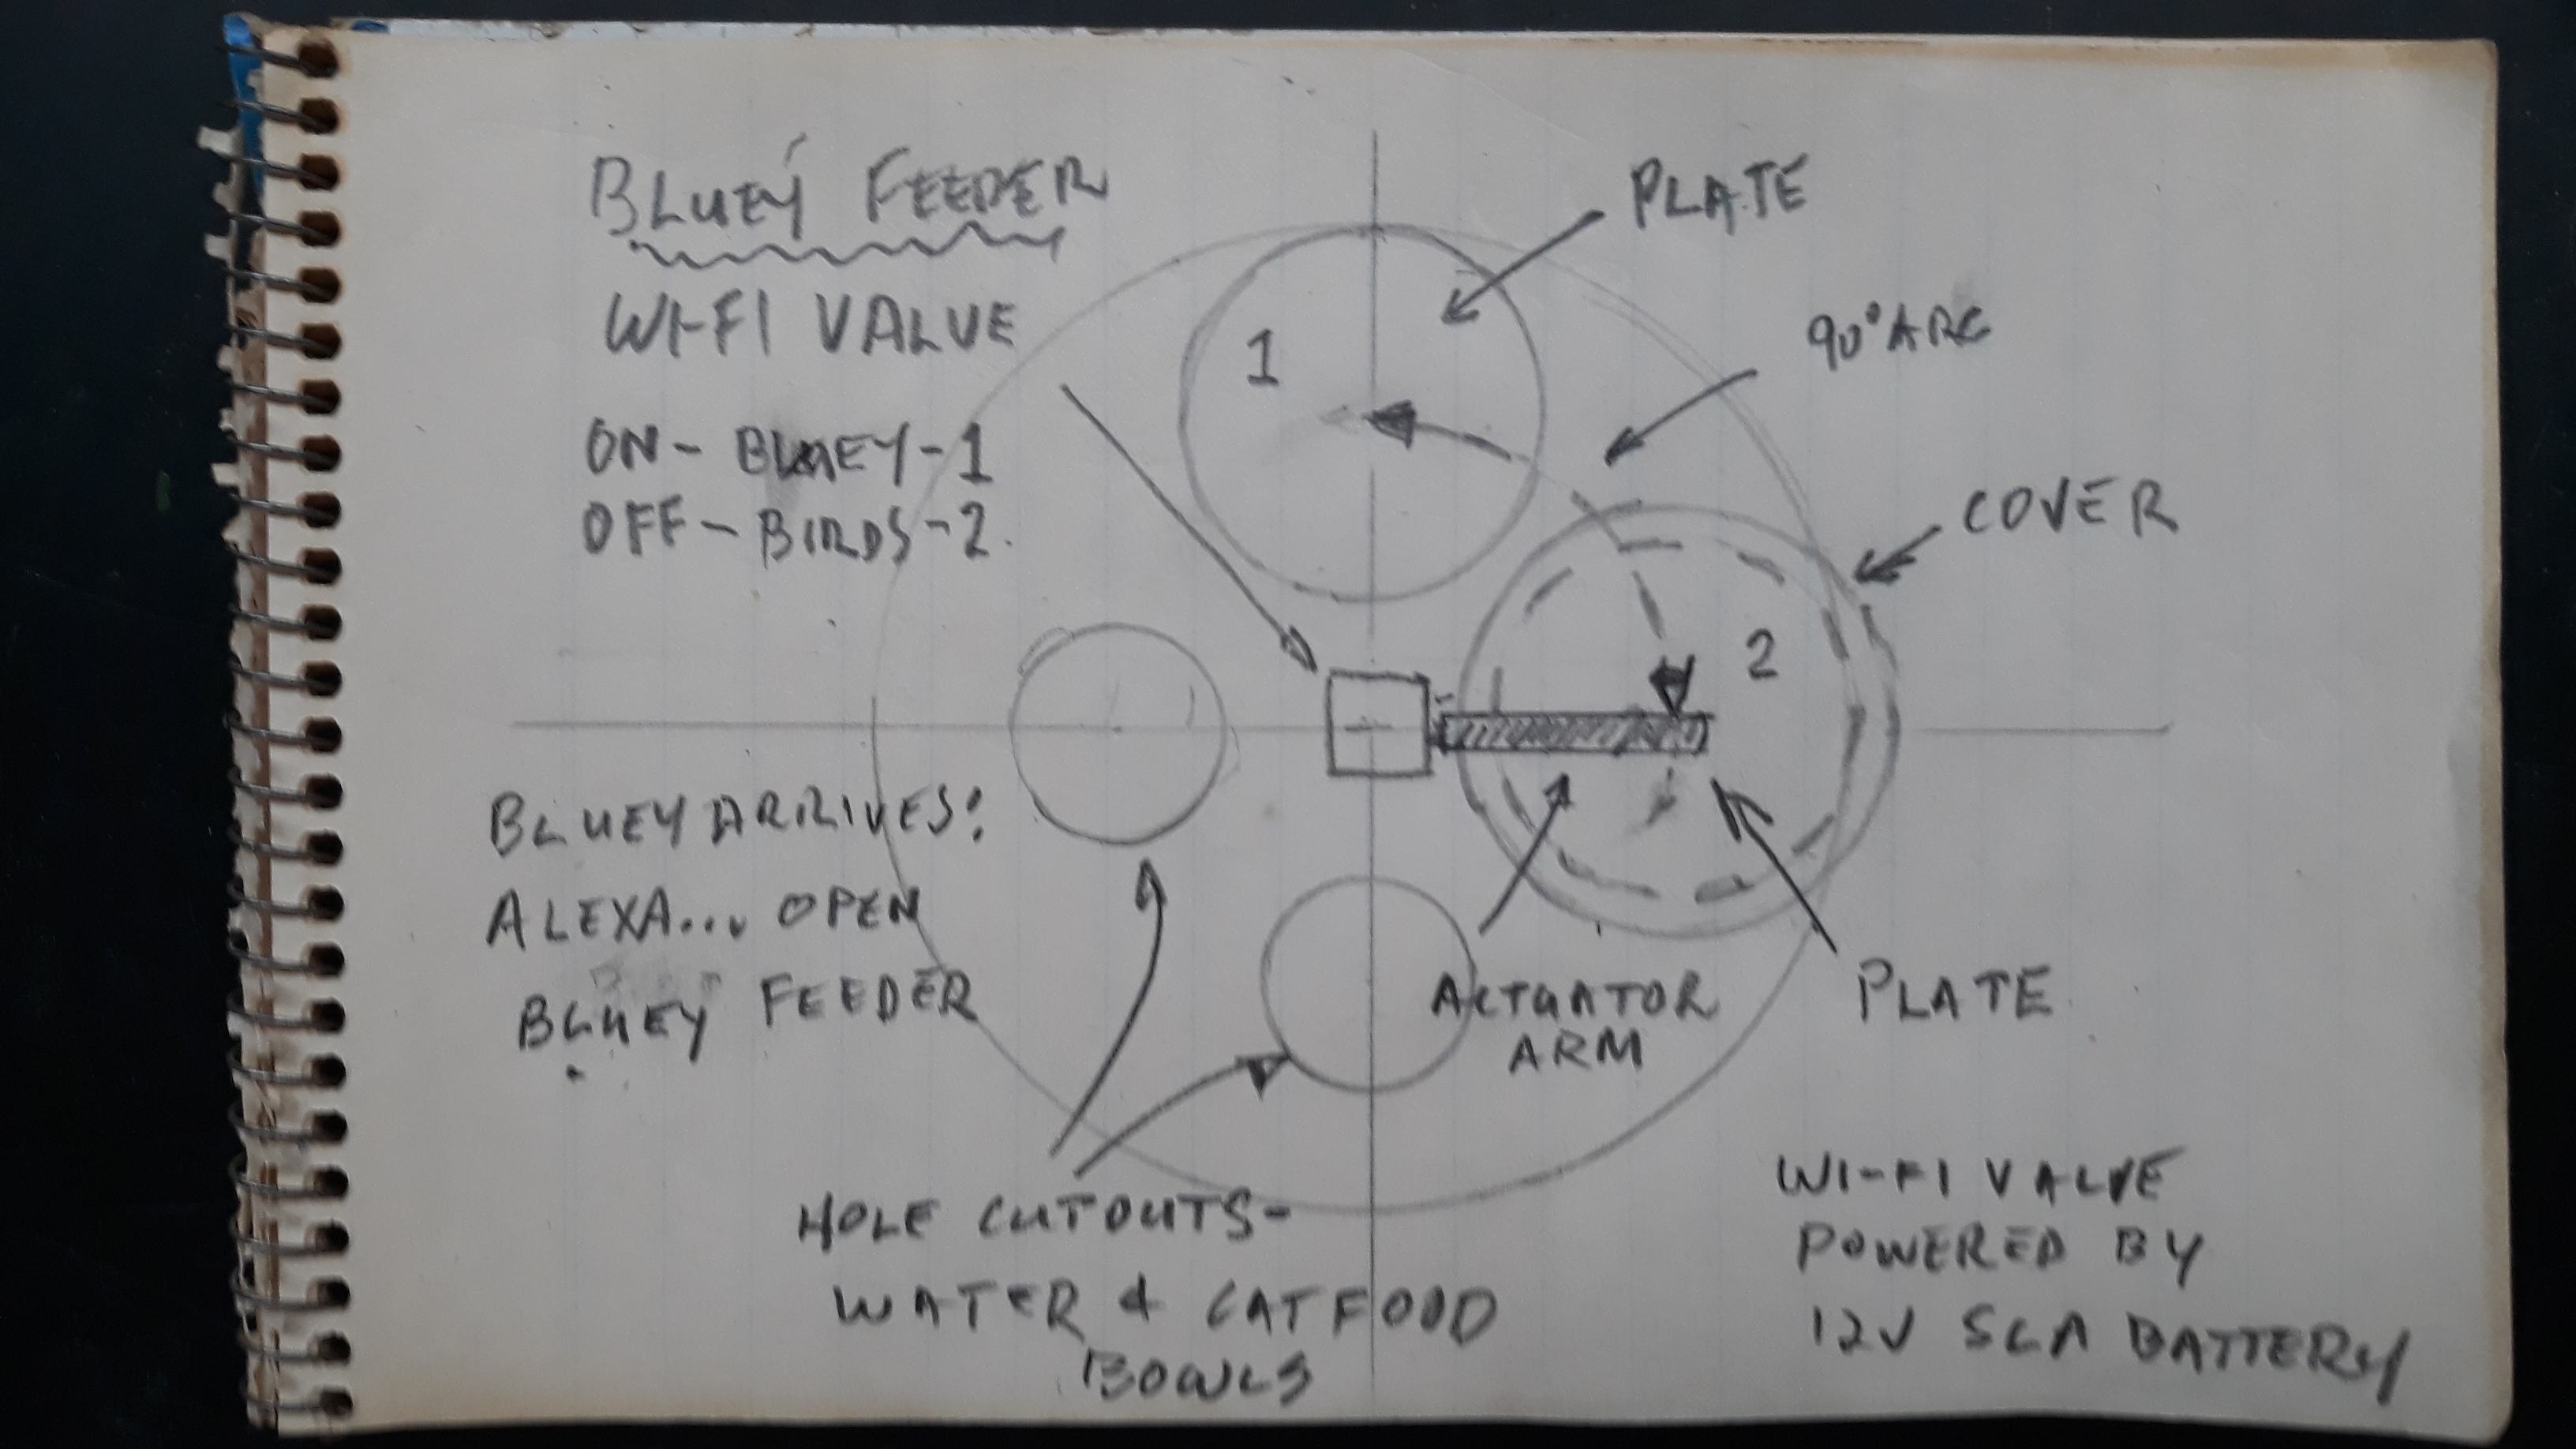 BLUEY FEEDER
WI-FI VALVE
ON - BLUEY - 1
OFF - BIRDS - 2.
PLATE
1
90° ARC
COVER
2
BLUEY ARRIVES!
ALEXA... OPEN
BLUEY FEEDER
ACTUATOR
ARM
PLATE
HOLE CUTOUTS -
WATER & CAT FOOD
BOWLS
WI-FI VALVE
POWERED BY
12V SLA BATTERY